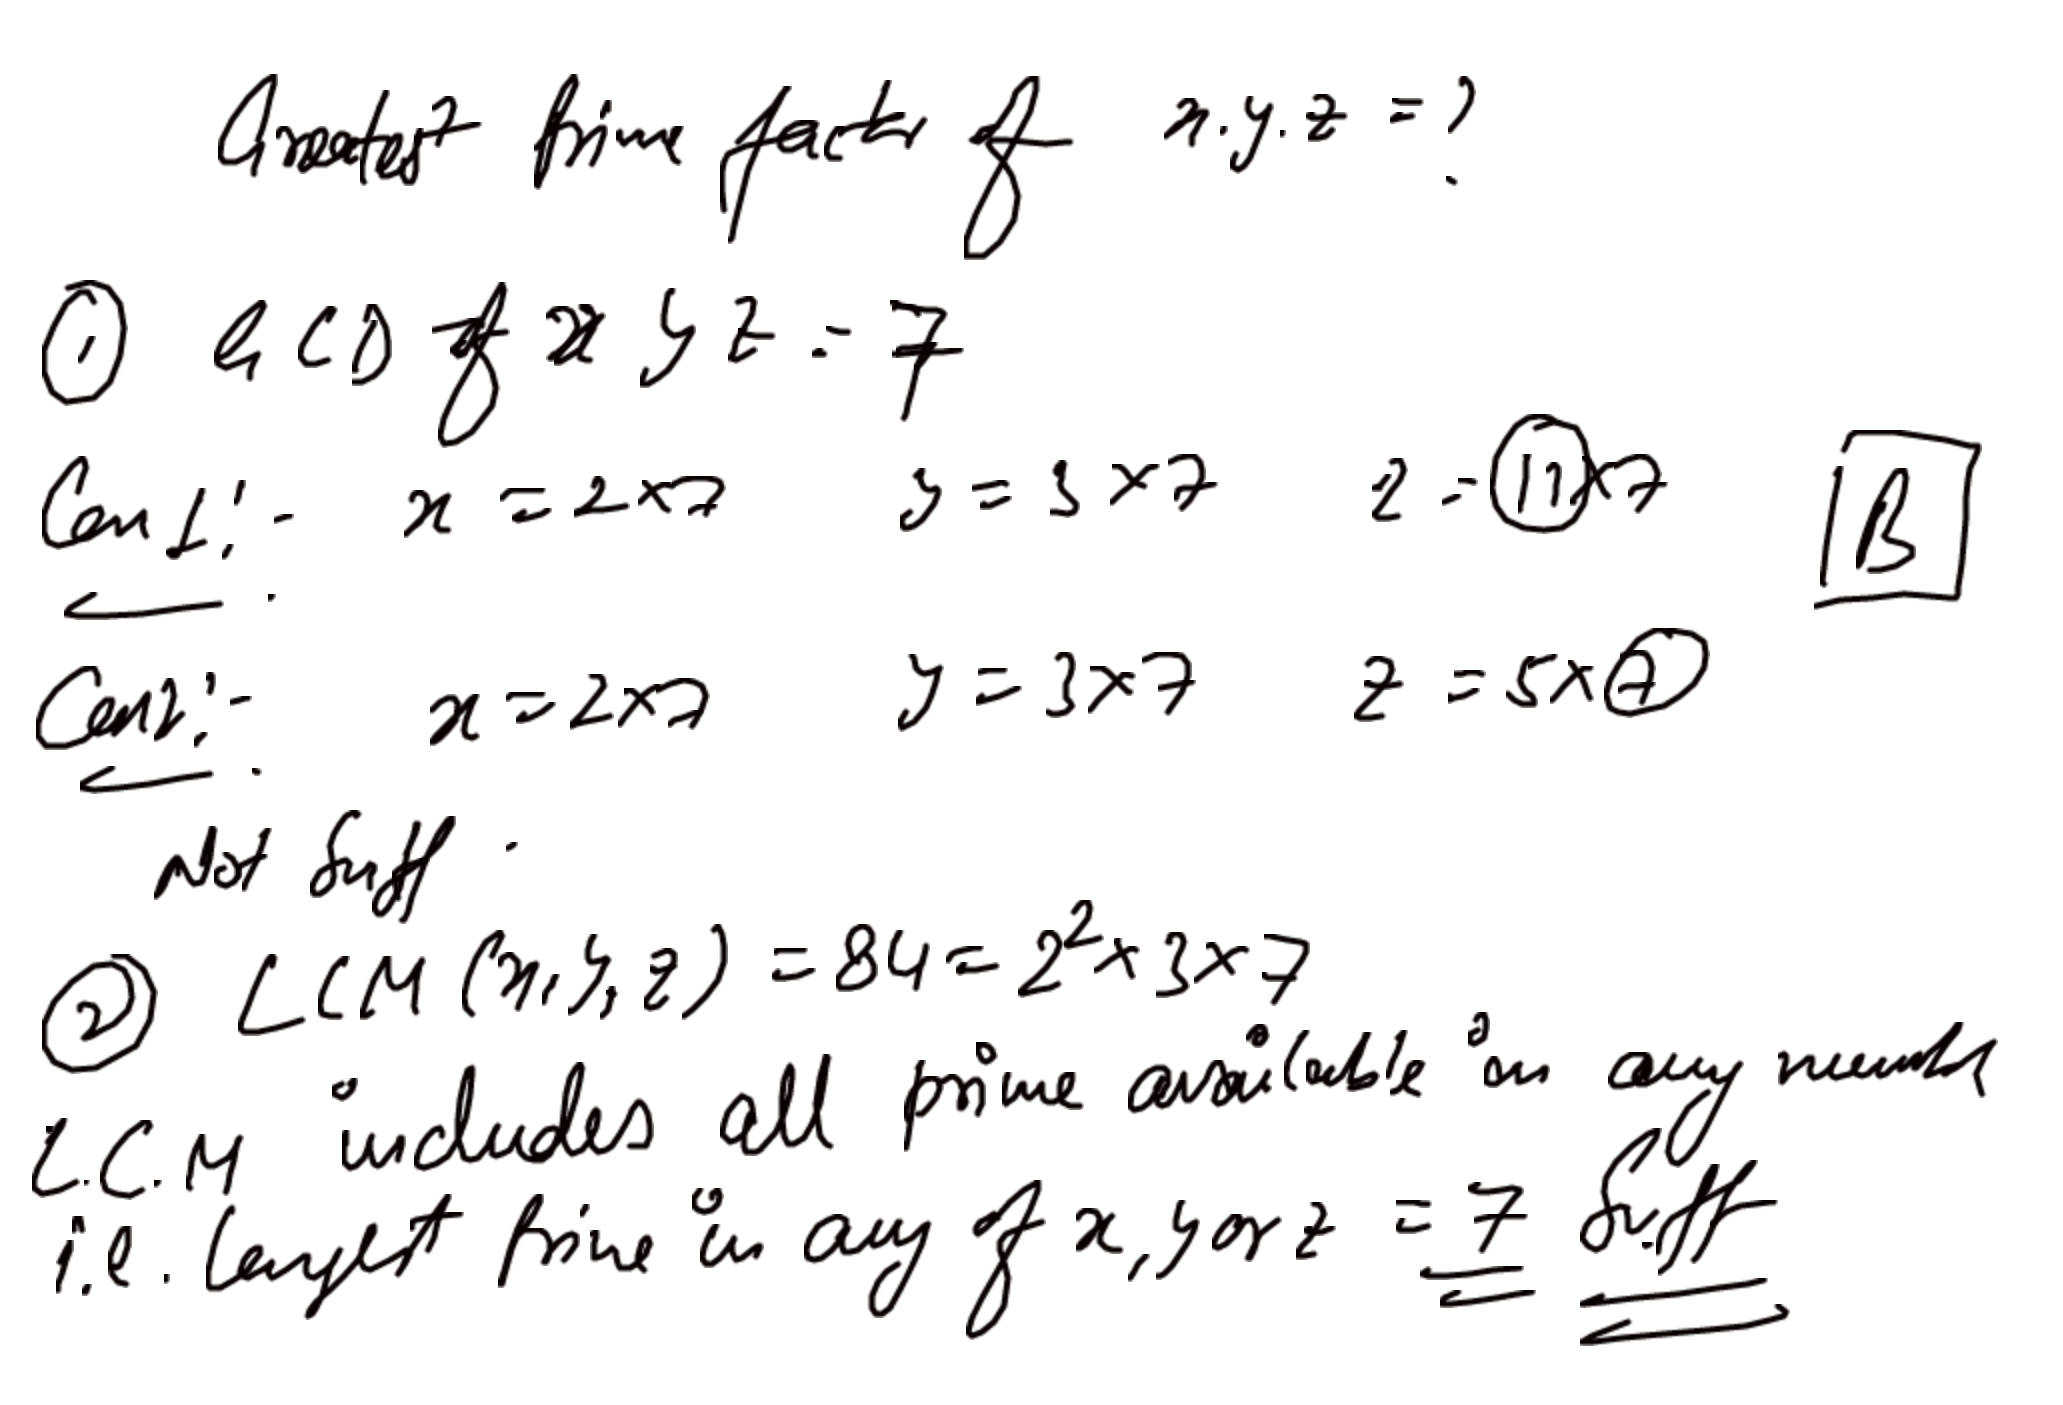 Greatest prime factor of x.y.z = ?
① GCD of x y z = 7
Case 1:- x = 2×7 y = 3×7 z = 11×7
B
Case 2:- x = 2×7 y = 3×7 z = 5×7
Not Suff.
② LCM (x, y, z) = 84 = 2²×3×7
L.C.M includes all prime available in any number
i.e. largest prime in any of x, y or z = 7 Suff